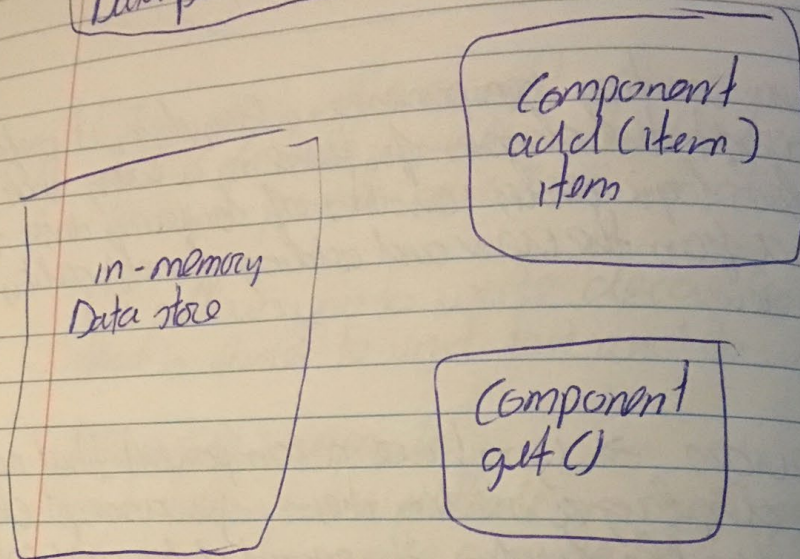 Component
add (item)
item
in-memory
Data store
Component
get ()